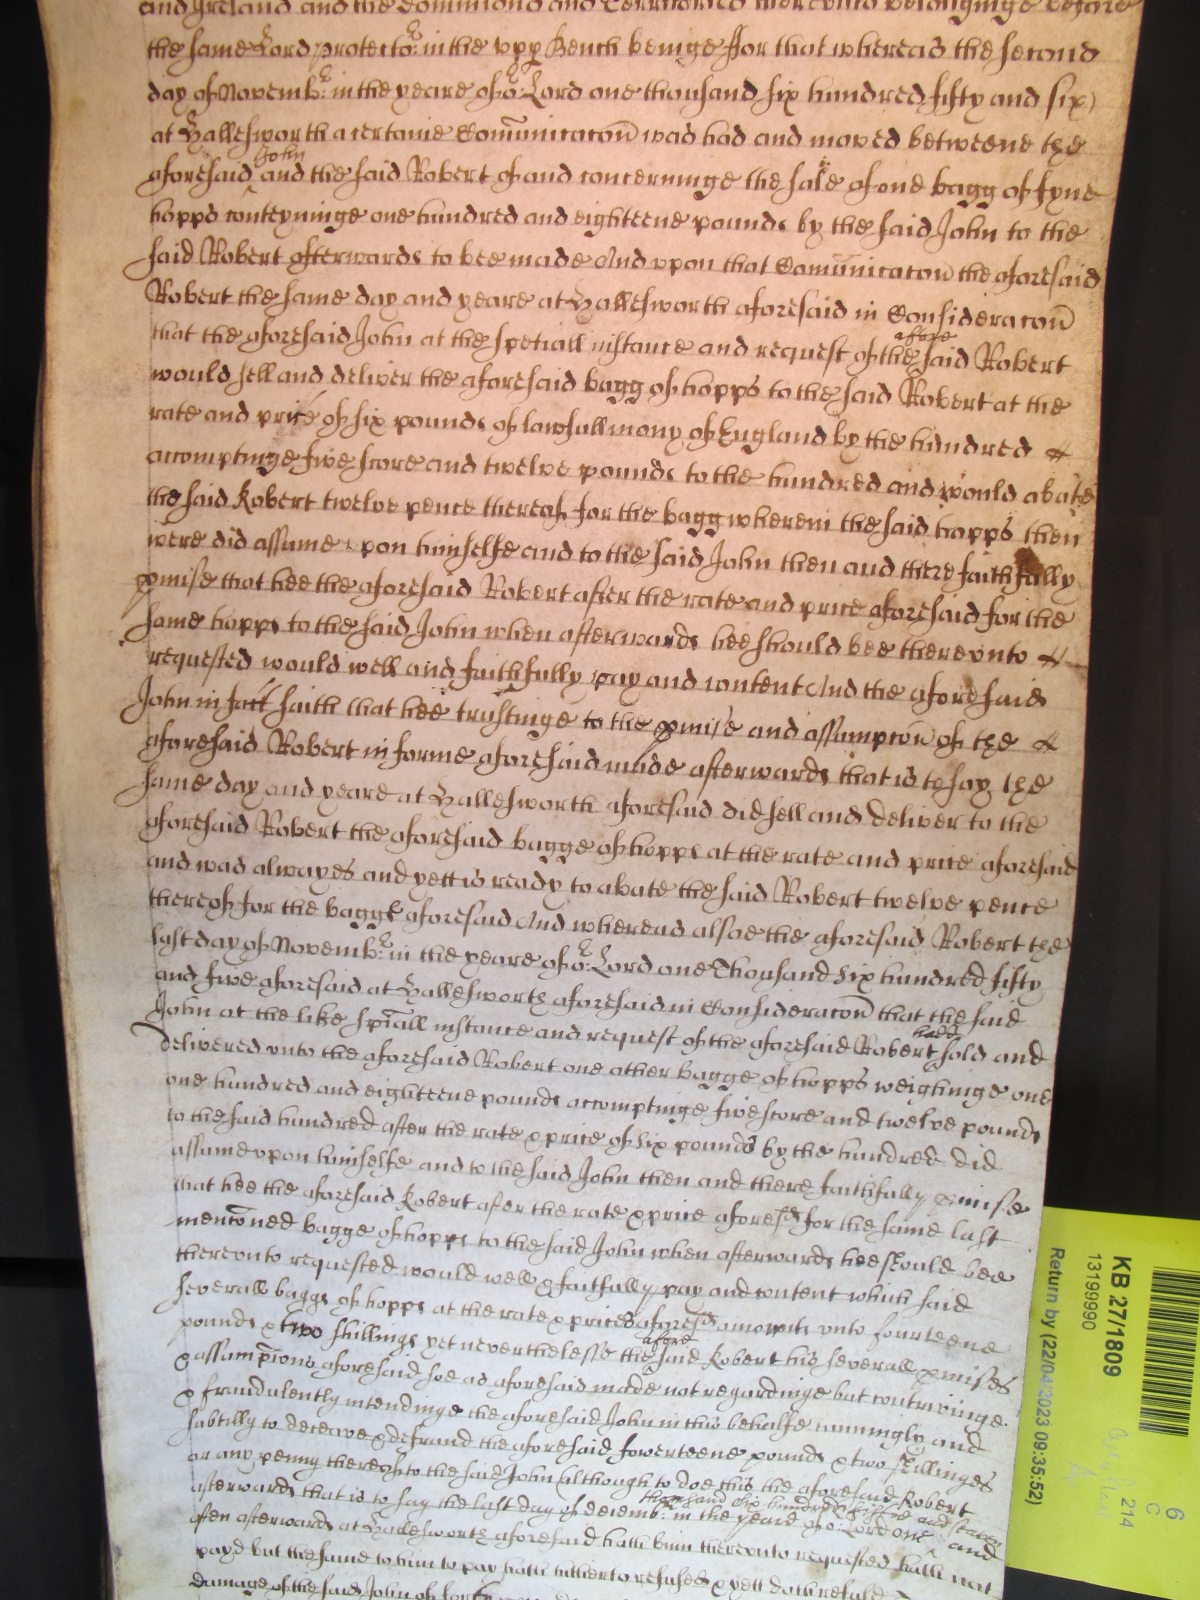 and Ireland and the Dominions and Territories thereunto belonginge before
the same Lord protector in the upp Bench beinge ffor that whereas the second
day of Novemb:r in the yeare of or: Lord one thousand six hundred fifty and six
at Hallesworth a certaine Comunicacon was had and moved betweene the
aforesaid John and the said Robert of and concerninge the sale of one bagg of fyne
hopps conteyninge one hundred and eighteene pounds by the said John to the
said Robert afterwards to bee made And upon that Comunicacon the aforesaid
Robert the same day and yeare at Hallesworth aforesaid in Consideracon
that the aforesaid John at the speciall instance and request of the afore said Robert
would sell and deliver the aforesaid bagg of hopps to the said Robert at the
rate and price of six pounds of lawfull mony of England by the hundred
accomptinge five score and twelve pounds to the hundred and would abate
the said Robert twelve pence thereof for the bagg wherein the said hopps then
were did assume upon himselfe and to the said John then and there faithfully
pmise that hee the aforesaid Robert after the rate and price aforesaid for the
same hopps to the said John when afterwards hee should bee thereunto
requested would well and faithfully pay and content And the aforesaid
John in fact saith that hee trustinge to the pmise and assumpcon of the
aforesaid Robert in forme aforesaid made afterwards that is to say the
same day and yeare at Hallesworth aforesaid did sell and deliver to the
aforesaid Robert the aforesaid bagge of hopps at the rate and price aforesaid
and was alwayes and yett is ready to abate the said Robert twelve pence
thereof for the bagge aforesaid And whereas alsoe the aforesaid Robert the
last day of Novemb:r in the yeare of or: Lord one Thousand six hundred fifty
and five aforesaid at Hallesworth aforesaid in Consideracon that the said
John at the like spiall instance and request of the aforesaid Robert hadd sold and
delivered unto the aforesaid Robert one other bagge of hopps weighinge one
one hundred and eighteene pounds accomptinge five score and twelve pounds
to the said hundred after the rate & price of six pounds by the hundred did
assume upon himselfe and to the said John then and there faithfully pmise
that hee the aforesaid Robert after the rate & price aforesd for the same last
menconed bagge of hopps to the said John when afterwards hee should bee
thereunto requested would well & faithfully pay and content which said
severall baggs of hopps at the rate & prices aforesd amounts unto fourteene
pounds & two shillings yet neverthelesse the afore said Robert his severall pmises
& assumpcons aforesaid soe as aforesaid made not regardinge but contrivinge
& fraudulently intendinge the aforesaid John in this behalfe cunningly and
subtilly to deceave & defraud the aforesaid fowerteene pounds & two shillinges
or any penny thereof to the said John (although to doe this the aforesaid Robert
afterwards that is to say the last day of decemb:r in the yeare of or: Lord one thousand six hundred fiftie and seaven and
often afterwards at Hallesworth aforesaid hath bin thereunto requested hath not
payd but the same to him to pay hath hitherto refused & yett doth refuse
damage of the said John of forty
KB 27/1809
13199990
Return by (22/04/2023 09:35:52)
6
C
214